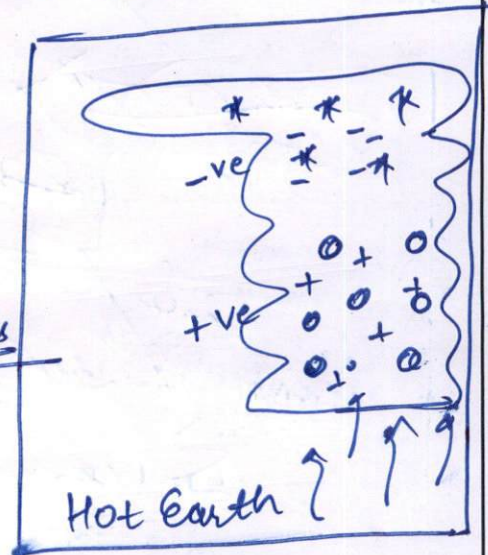 -ve
+ve
Hot Earth